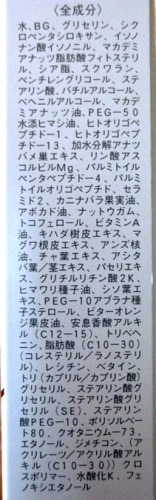 〈全成分〉
水、BG、グリセリン、シク
ロペンタシロキサン、イソノ
ナン酸イソノニル、マカデミ
アナッツ脂肪酸フィトステリ
ル、シア脂、スクワラン、
ペンチレングリコール、ステ
アリン酸、バチルアルコール、
ベヘニルアルコール、マカデ
ミアナッツ油、PEG-50
水添ヒマシ油、ヒトオリゴペ
プチド-1、ヒトオリゴペプ
チド-13、加水分解アナツ
バメ巣エキス、リン酸アス
コルビルMg、パルミトイル
ペンタペプチド-4、パルミ
トイルオリゴペプチド、セラ
ミド2、カニナバラ果実油、
アボカド油、ナットウガム、
トコフェロール、ビタミンA
油、キハダ樹皮エキス、マ
グワ根皮エキス、アンズ核
油、チャ葉エキス、アシタ
バ葉/茎エキス、パセリエキ
ス、グリチルリチン酸2K、
ヒマワリ種子油、シソ葉エ
キス、PEG-10アブラナ種
子ステロール、ビターオレン
ジ果皮油、安息香酸アルキル
(C12-15)、トリベヘ
ニン、脂肪酸(C10-30)
(コレステリル/ラノステリ
ル)、レシチン、ベタイン、
トリ(カプリル/カプリン酸)
グリセリル、ステアリン酸グ
リセリル、ステアリン酸グ
リセリル(SE)、ステアリン
酸PEG-10、ポリソルベ
ート80、クオタニウム-73、
エタノール、ジメチコン、(ア
クリレーツ/アクリル酸アル
キル(C10-30))クロ
スポリマー、水酸化K、フェ
ノキシエタノール